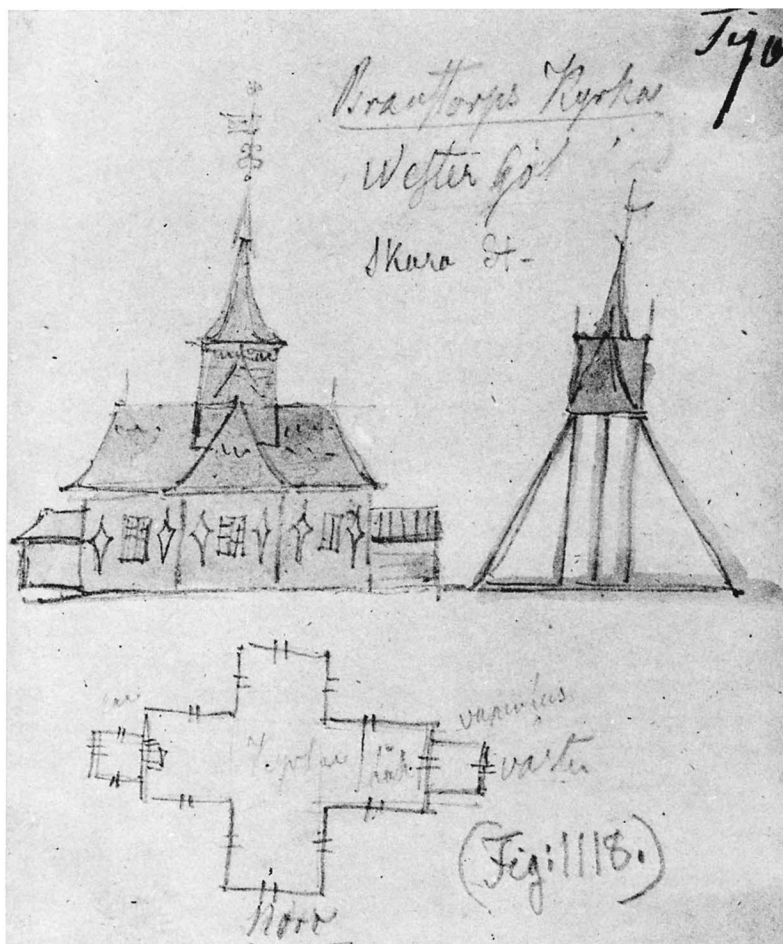 Brantorps Kyrka
Wester Göt
Skara St-
vapenhus
Kyrkan
väster
(Fig: 1118.)
Norr